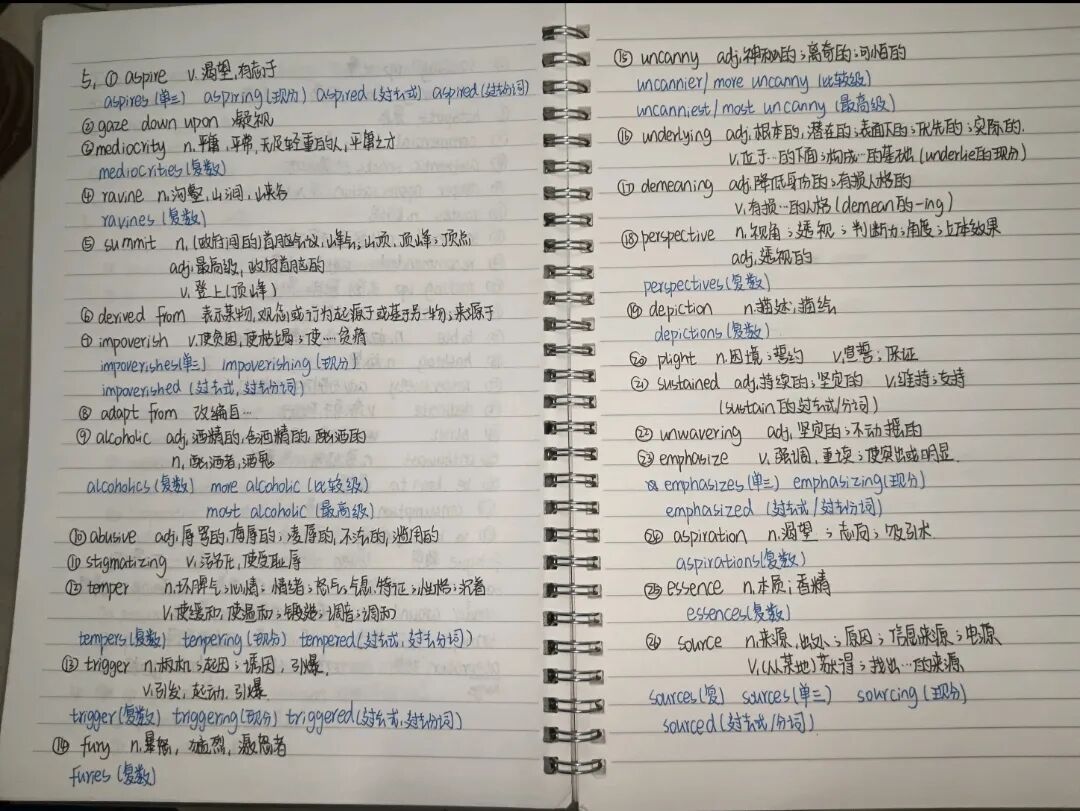 5, ① aspire v. 渴望,有志于
aspires(单三) aspiring(现分) aspired(过去式) aspired(过去分词)
②gaze down upon 凝视
③mediocrity n.平庸,平常,无足轻重的人,平庸之才
mediocrities(复数)
④ ravine n.沟壑,山涧,山峡谷
ravines(复数)
⑤ summit n.(政府间的)首脑会议;山峰;山顶,顶峰;顶点
adj.最高级,政府首脑的
v.登上(顶峰)
⑥ derived from 表示某物,观念或行为起源于或基于另一物;来源于
⑦ impoverish v.使贫困,使枯竭;使…贫瘠
impoverishes(单三) impoverishing(现分)
impoverished (过去式,过去分词)
⑧ adapt from 改编自…
⑨ alcoholic adj,酒精的,含酒精的,酗酒的
n,酗酒者,酒鬼
alcoholics(复数) more alcoholic(比较级)
most alcoholic(最高级)
⑩abusive adj,辱骂的,侮辱的;凌辱的,不法的,滥用的
⑪stigmatizing v.污名化,使受耻辱
⑫temper n.坏脾气;心情;情绪;怒气,气息,特征;性格;沉着
v,使缓和,使温和;锻造;调音;调和
tempers(复数) tempering(现分) tempered(过去式,过去分词)
⑬trigger n.扳机;起因;诱因;引爆,
v.引发,起动,引爆
trigger(复数) triggering(现分) triggered(过去式,过去分词)
⑭ fury n.暴怒,猛烈,激怒者
furies(复数)
⑮ uncanny adj,神秘的;离奇的;可怕的
uncannier/more uncanny(比较级)
uncanniest/most uncanny(最高级)
⑯ underlying adj.根本的,潜在的;表面下的;优先的;实际的.
v.位于…的下面;构成…的基础(underlie的现分)
⑰ demeaning adj.降低身份的;有损人格的
v.有损…的人格(demean的-ing)
⑱perspective n.视角;透视;判断力;角度;立体效果
adj,透视的
perspectives(复数)
⑲ depiction n.描述;描绘
depictions(复数)
⑳ plight n.困境;誓约 v.宣誓;保证
㉑ sustained adj,持续的;坚定的 v,维持;支持
(sustain的过去式/分词)
㉒ unwavering adj,坚定的;不动摇的
㉓ emphasize v.强调,重读;使突出或明显
emphasizes(单三) emphasizing(现分)
emphasized (过去式/过去分词)
㉔ aspiration n.渴望;志向;吸引术
aspirations(复数)
㉕ essence n.本质;香精
essences(复数)
㉖ source n.来源,出处;原因;信息来源;电源
v,(从某地)获得;找出…的来源
sources(复) sources(单三) sourcing(现分)
sourced(过去式/分词)